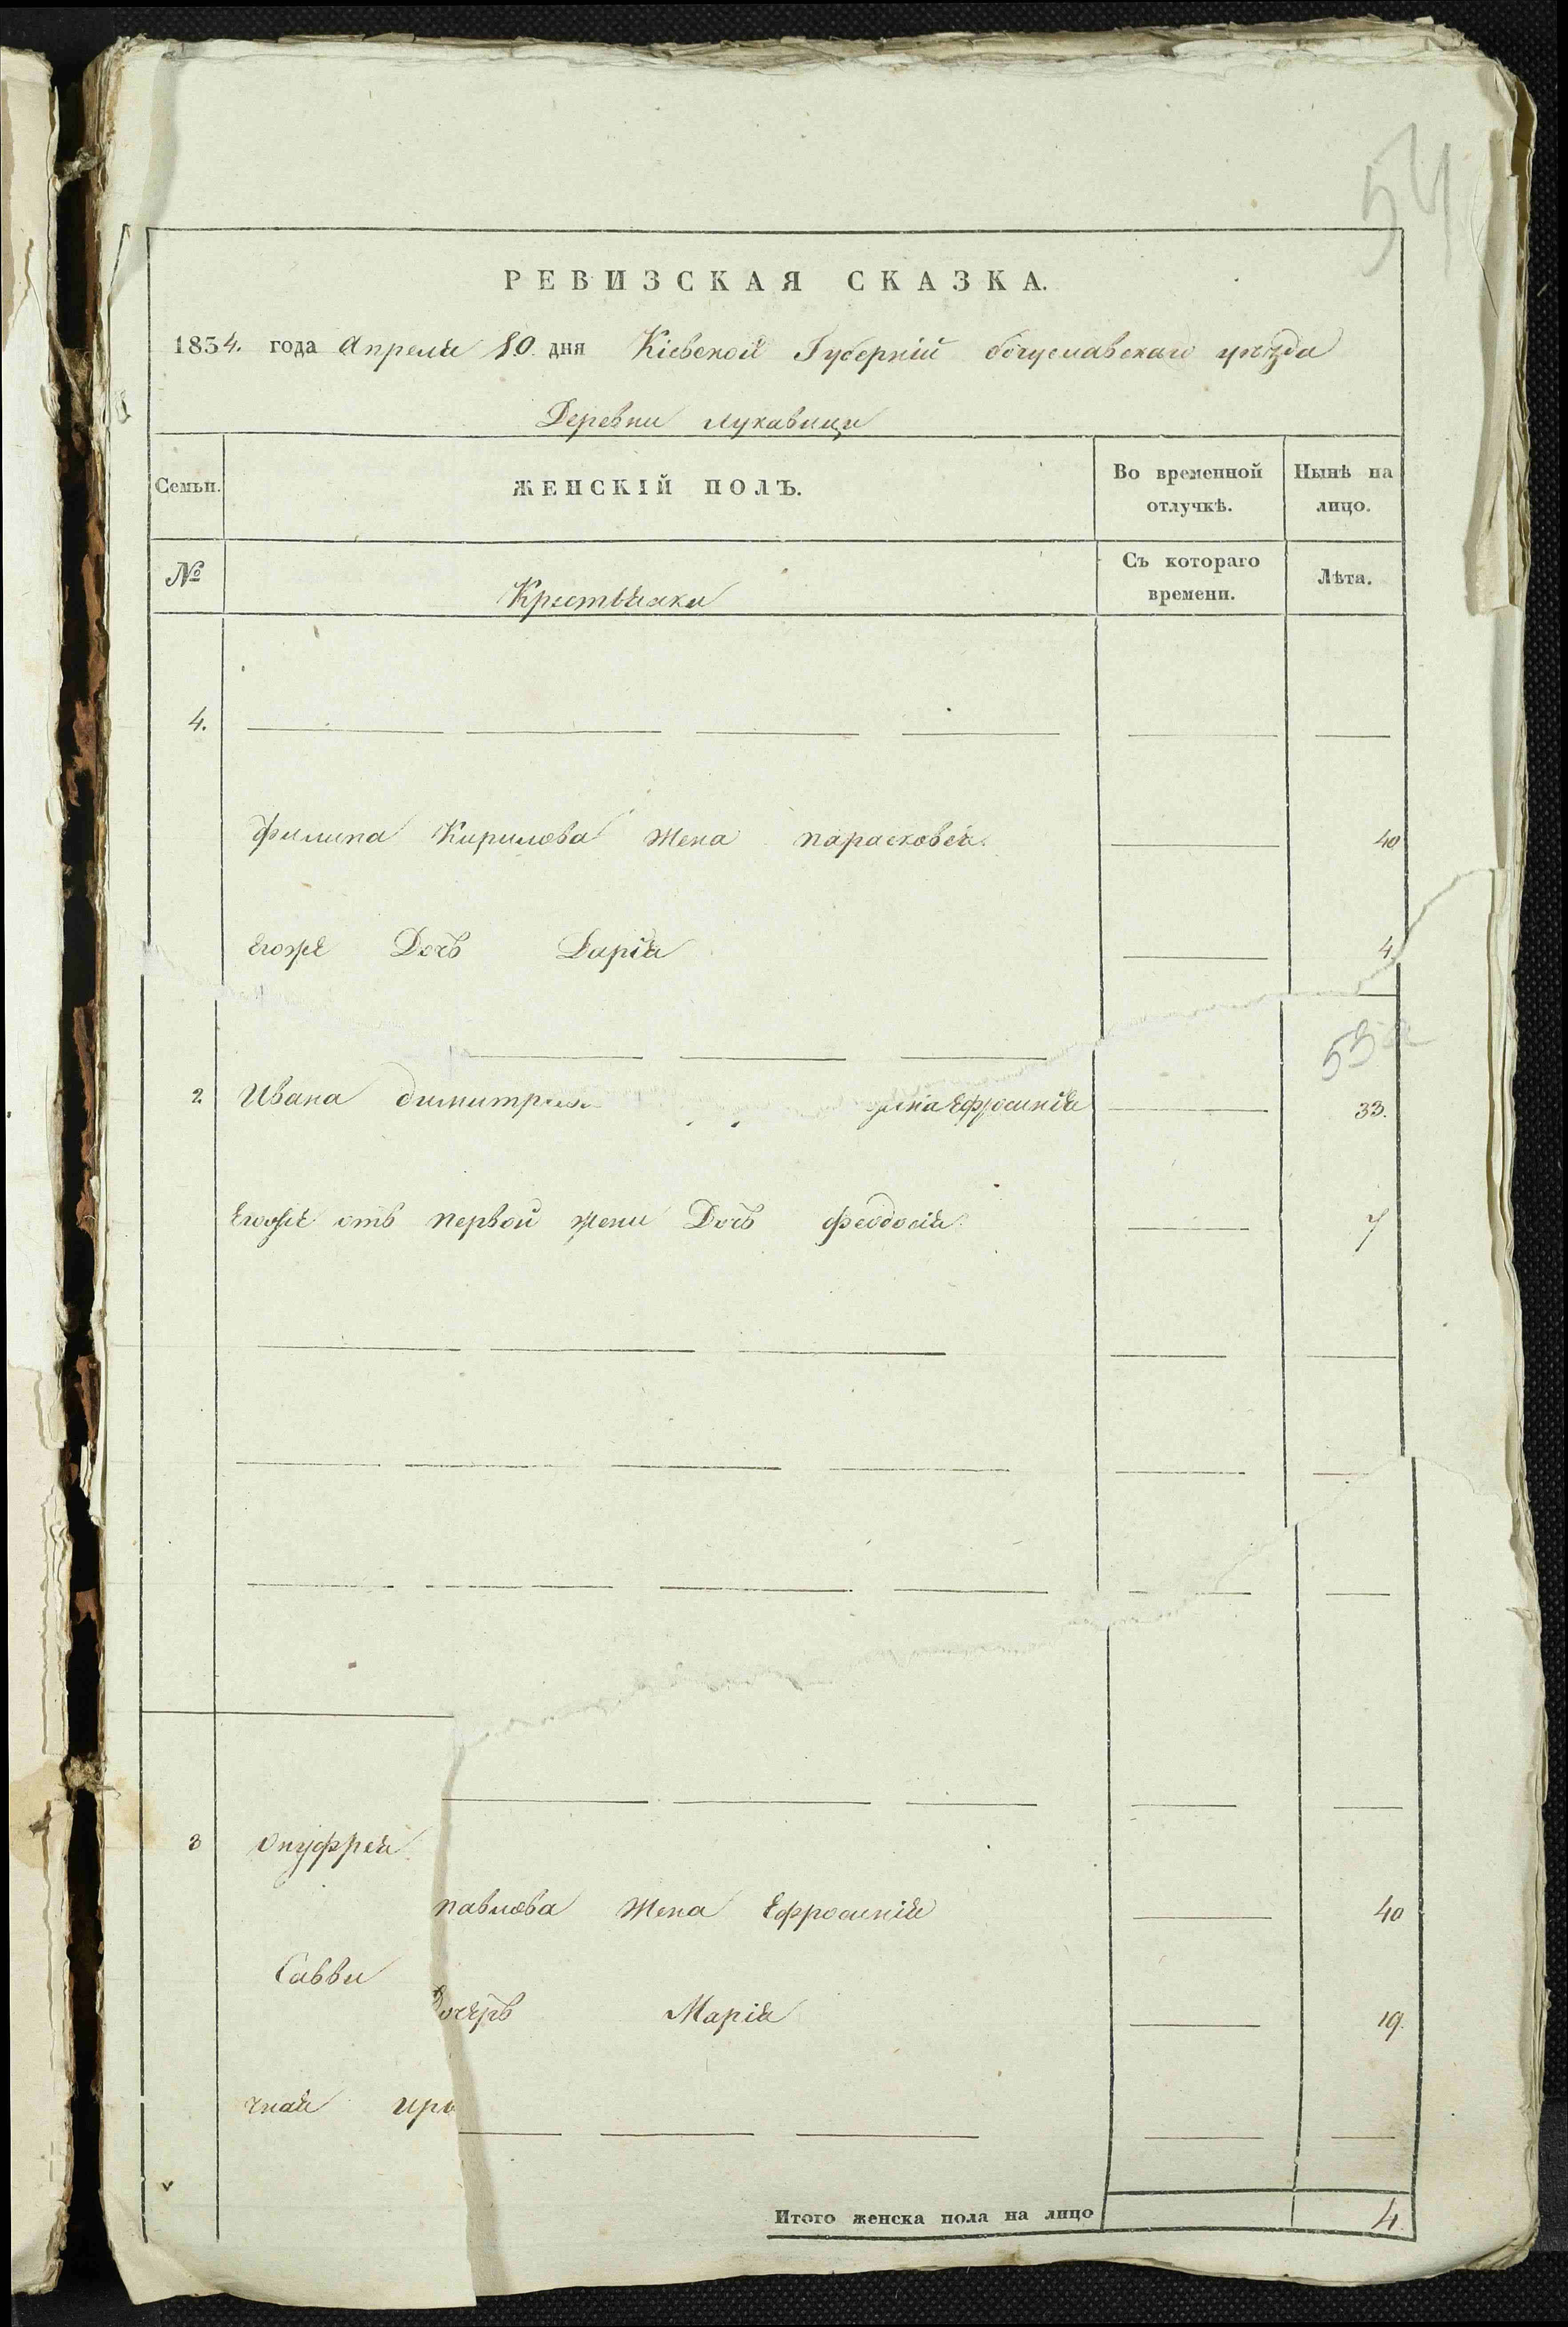 54
РЕВИЗСКАЯ СКАЗКА.
1834. года Апреля 10. дня Кіевской Губерніи богуславскаго уѣзда
Деревни Лукавици
Семьи. ЖЕНСКІЙ ПОЛЪ. Во временной отлучкѣ. Нынѣ на лицо.
№ Крестьянки Съ котораго времени. Лѣта.
4.
Филипа Кирилова жена парасковія 40
Егоже Дочь Дарія 4.
53
2. Ивана димитрия жена Ефросинія 33.
Егоже отъ первой жени Дочь феодосія 7
3 Онуфрея
павлова жена Ефросинія 40
Савви
дочерь Марія 19.
Итого женска пола на лицо 4.